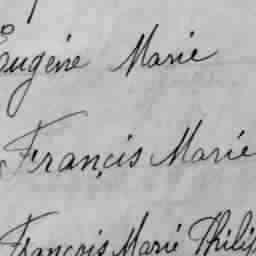 Eugène Marie
Francis Marie
François Marie Philip